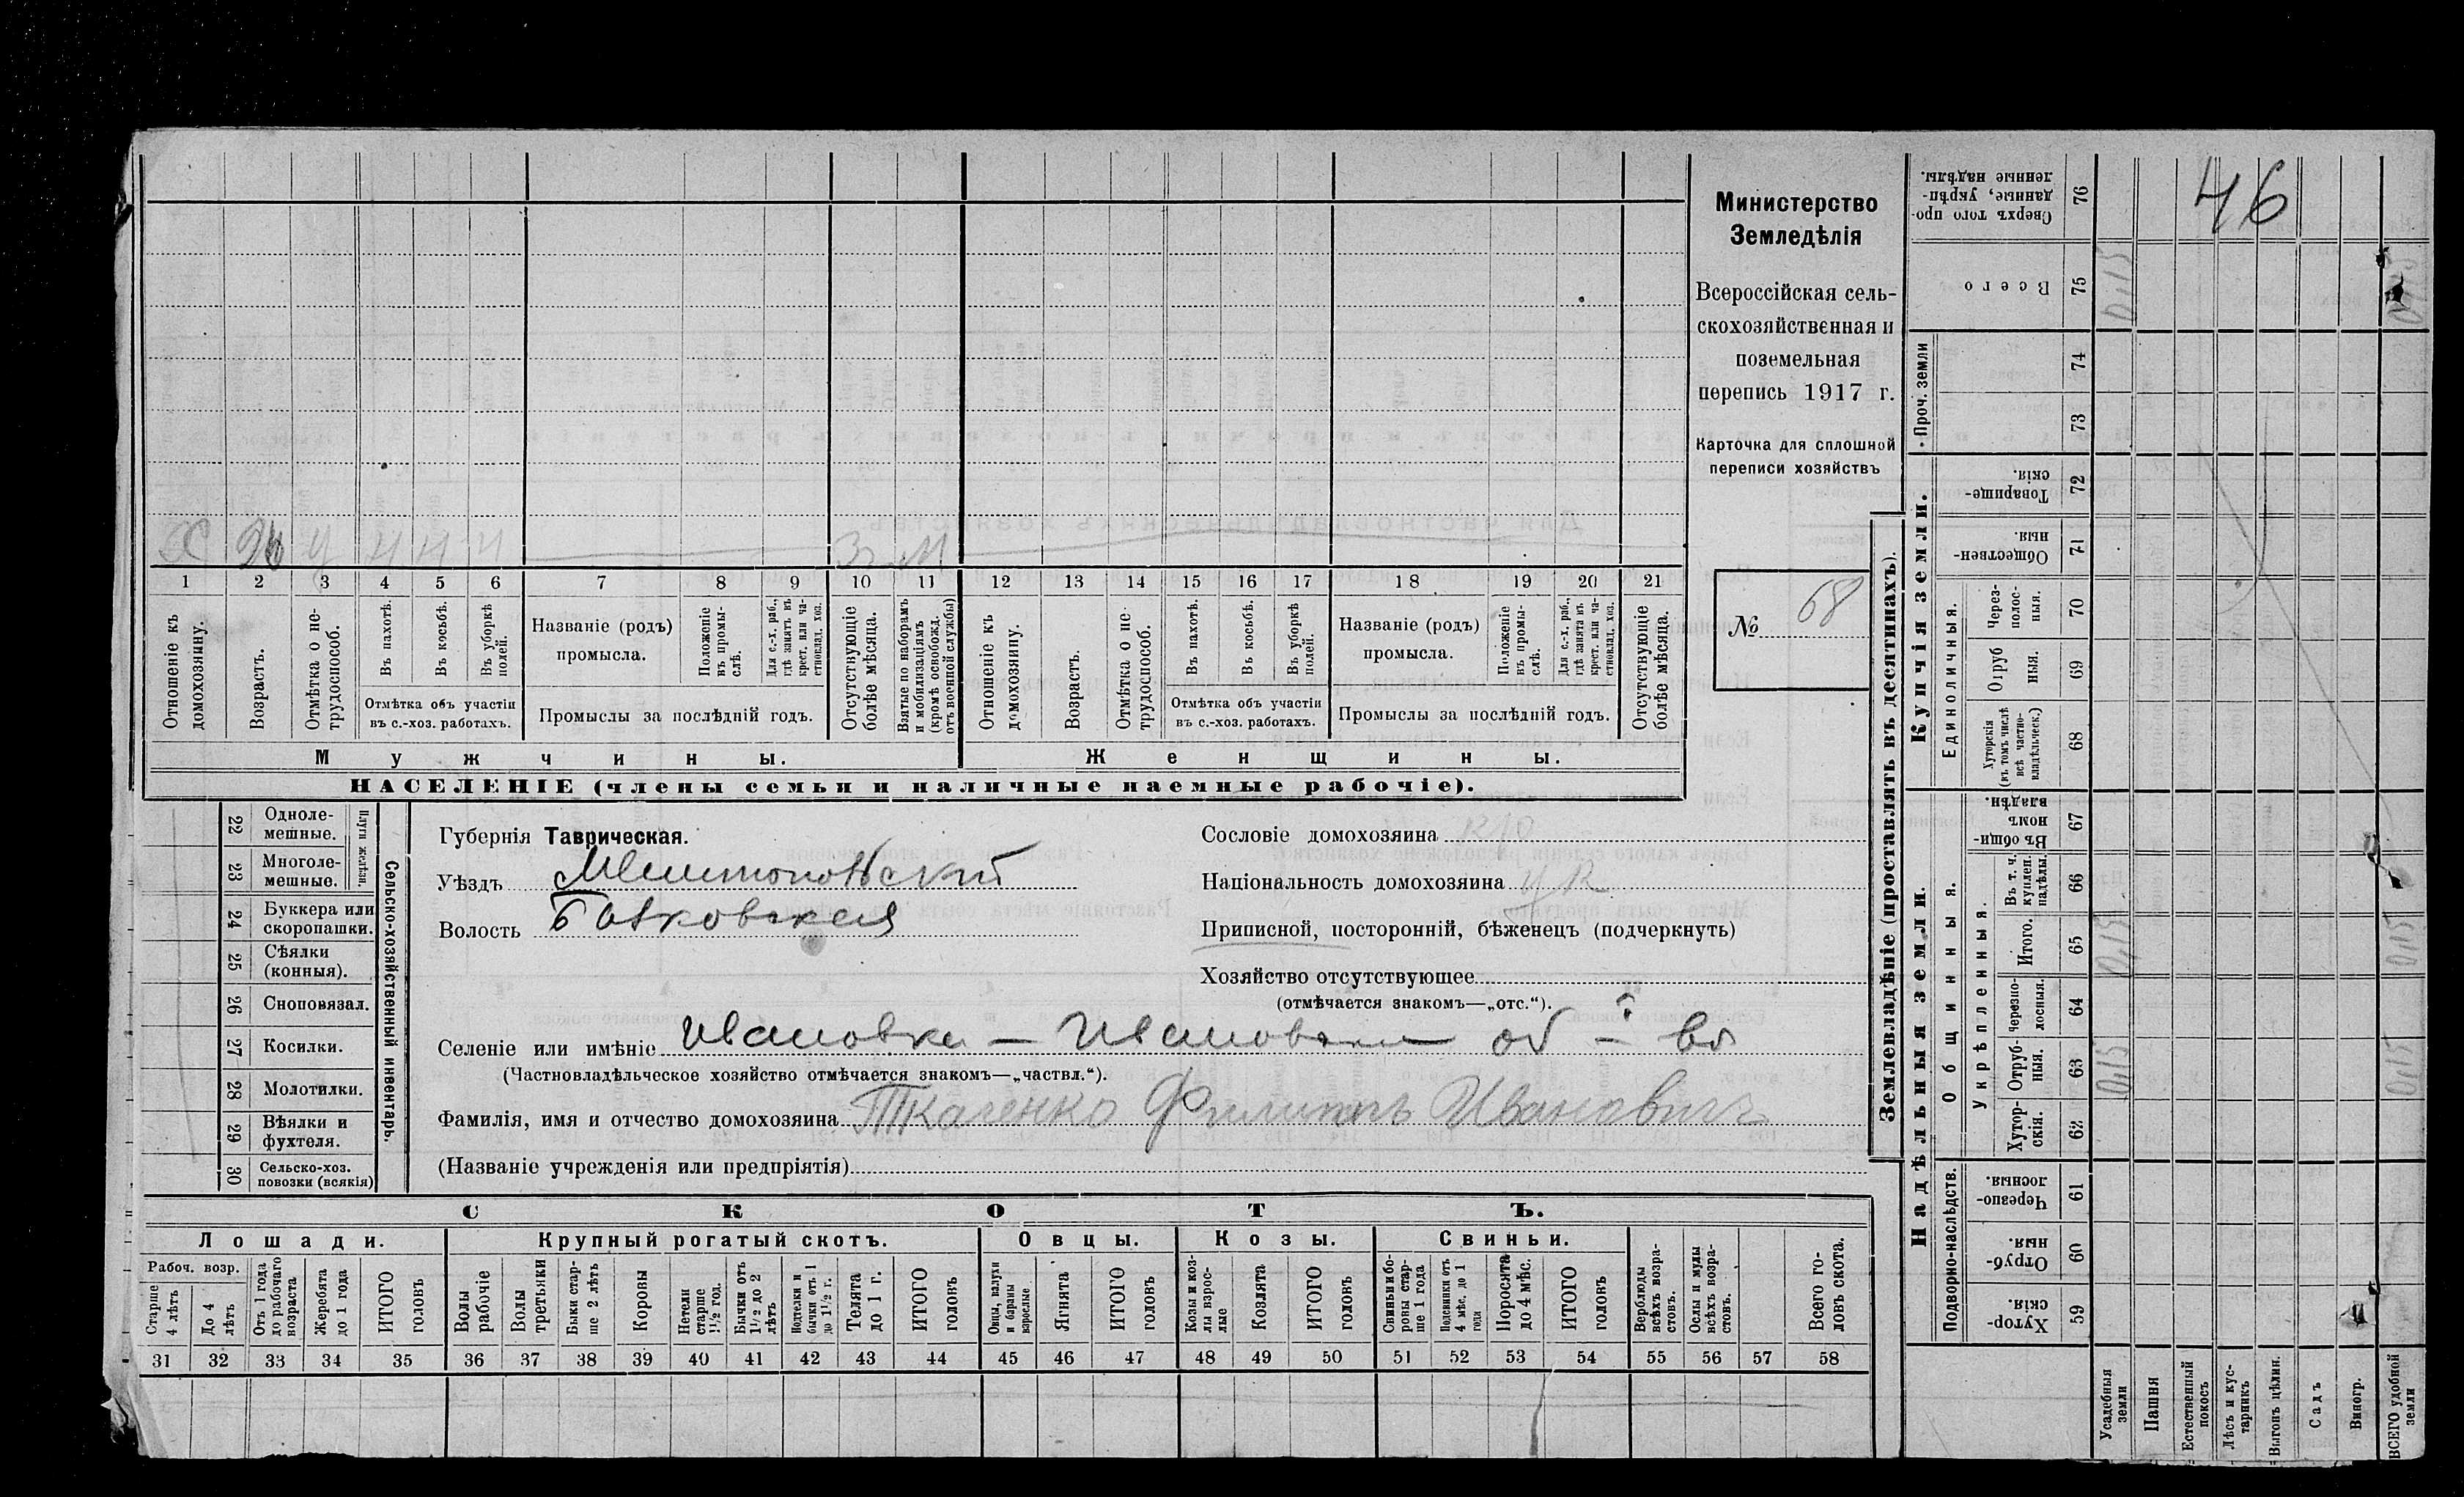 46
Министерство
Земледѣлія
Всероссійская сель-
скохозяйственная и
поземельная
перепись 1917 г.
Карточка для сплошной
переписи хозяйствъ
№ 68
Х 26 У Ч Ч Ч
1 2 3 4 5 6 7 8 9 10 11 12 13 14 15 16 17 18 19 20 21
Отношеніе къ домохозяину.
Возрастъ.
Отмѣтка о не-трудоспособ.
Въ пахотѣ.
Въ косьбѣ.
Въ уборкѣ полей.
Отмѣтка объ участіи
въ с.-хоз. работахъ.
Названіе (родъ)
промысла.
Положеніе въ промы-слѣ.
Для с.-х. раб., гдѣ занятъ въ крест. или ча-стновлад. хоз.
Промыслы за послѣдній годъ.
Отсутствующіе болѣе мѣсяца.
Взятые по наборамъ и мобилизаціямъ (кромѣ освобожд. отъ военной службы)
Отношеніе къ домохозяину.
Возрастъ.
Отмѣтка о не-трудоспособ.
Въ пахотѣ.
Въ косьбѣ.
Въ уборкѣ полей.
Отмѣтка объ участіи
въ с.-хоз. работахъ.
Названіе (родъ)
промысла.
Положеніе въ промы-слѣ.
Для с.-х. раб., гдѣ занята въ крест. или ча-стновлад. хоз.
Промыслы за послѣдній годъ.
Отсутствующіе болѣе мѣсяца.
Мужчины.
Женщины.
НАСЕЛЕНІЕ (члены семьи и наличные наемные рабочіе).
Сельско-хозяйственный инвентарь.
Плуги желѣзн.
22 Одноле-мешные.
23 Многоле-мешные.
24 Буккера или скоропашки.
25 Сѣялки (конныя).
26 Сноповязал.
27 Косилки.
28 Молотилки.
29 Вѣялки и фухтеля.
30 Сельско-хоз. повозки (всякія)
Губернія Таврическая.
Уѣздъ Мелитопольский
Волость
Сословіе домохозяина кр
Національность домохозяина ук
Приписной, посторонній, бѣженецъ (подчеркнуть)
Хозяйство отсутствующее
(отмѣчается знакомъ—„отс.“).
Селеніе или имѣніе Ивановка — об – во
(Частновладѣльческое хозяйство отмѣчается знакомъ—„частвл.“).
Фамилія, имя и отчество домохозяина Ткаченко Филиппъ Ивановичъ
(Названіе учрежденія или предпріятія)
СКОТЪ.
Лошади.
Рабоч. возр.
Старше 4 лѣтъ
До 4 лѣтъ
Отъ 1 года до рабочаго возраста
Жеребята до 1 года
ИТОГО головъ
Крупный рогатый скотъ.
Волы рабочіе
Волы третьяки
Быки стар-ше 2 лѣтъ
Коровы
Нетели старше 1½ год.
Бычки отъ 1½ до 2 лѣтъ
Подтелки и бычки отъ 1 до 1½ г.
Телята до 1 г.
ИТОГО головъ
Овцы.
Овцы, валухи и бараны взрослые
Ягнята
ИТОГО головъ
Козы.
Козы и коз-лы взрос-лые
Козлята
ИТОГО головъ
Свиньи.
Свиньи и бо-ровы стар-ше 1 года
Подсвинки отъ 4 мѣс. до 1 года
Поросята до 4 мѣс.
ИТОГО головъ
Верблюды всѣхъ возра-стовъ.
Ослы и мулы всѣхъ возра-стовъ.
Всего го-ловъ скота.
31 32 33 34 35 36 37 38 39 40 41 42 43 44 45 46 47 48 49 50 51 52 53 54 55 56 57 58
Землевладѣніе (проставлять въ десятинахъ).
Надѣльныя земли.
Купчія земли.
Проч. земли
Подворно-наслѣдств.
Общинныя.
Укрѣпленныя.
Единоличныя.
59 Хутор-скія.
60 Отруб-ныя.
61 Черезпо-лосныя.
62 Хутор-скія.
63 Отруб-ныя. 0,15 0,15
64 Черезпо-лосныя.
65 Итого. 0,15 0,15
66 Въ т. ч. куплен. надѣлы.
67 Въ общи-номъ владѣн.
68 Хуторскія (въ томъ числѣ всѣ частно-владѣльческ.)
69 Отруб ныя.
70 Через-полос-ныя.
71 Обществен-ныя.
72 Товарище-скія
73
74
75 Всего 0,15 0,15
76 Сверхъ того про-данные, укрѣп-ленные надѣлы.
Усадебныя земли
Пашня
Естественный покосъ
Лѣсъ и кус-тарникъ
Выгонъ цѣлин.
Садъ
Виногр.
ВСЕГО удобной земли